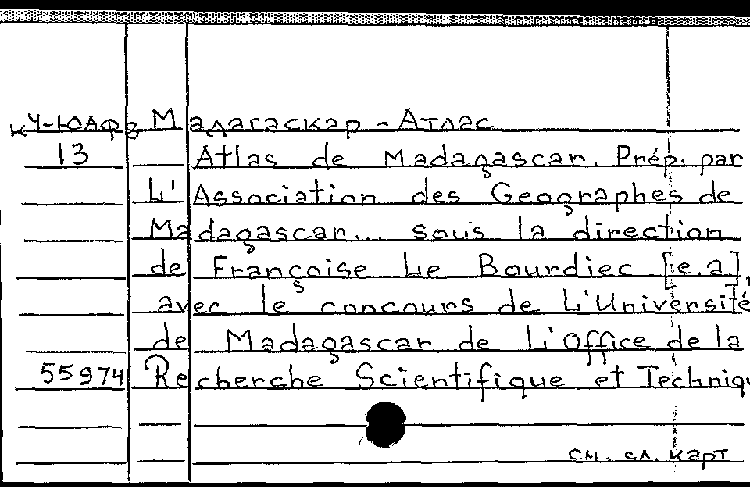 КУ-ЮАФ3 Мадагаскар - Атлас
13 Atlas de Madagascar. Prép. par
L'Association des Geographes de
Madagascar... sous la direction
de Françoise Le Bourdiec [e.a],
avec le concours de L'Université
de Madagascar de L'Office de la
55974 Recherche Scientifique et Techniqu
см. сл. карт